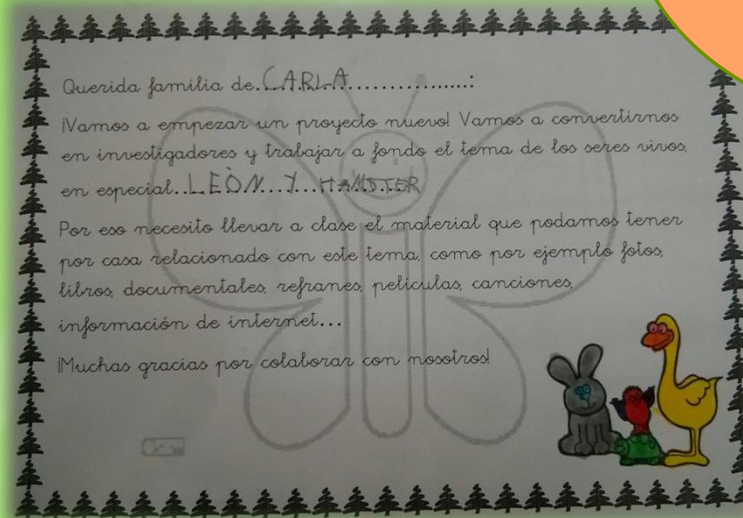 Querida familia de..CARLA................:
¡Vamos a empezar un proyecto nuevo! Vamos a convertirnos
en investigadores y trabajar a fondo el tema de los seres vivos,
en especial..LEÒN...Y...HAMSTER
Por eso necesito llevar a clase el material que podamos tener
por casa relacionado con este tema, como por ejemplo fotos,
libros, documentales, refranes, películas, canciones,
información de internet...
¡Muchas gracias por colaborar con nosotros!